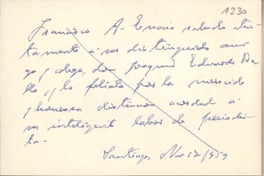 1230
Francisco A. Encina saluda
atentamente a su distinguido ami-
go y colega, don Joaquín Edwards Be-
llo, y lo felicita por la merecida
y honrosa distinción acordada a
su inteligente labor de periodis-
ta.
Santiago, Nov 12/959